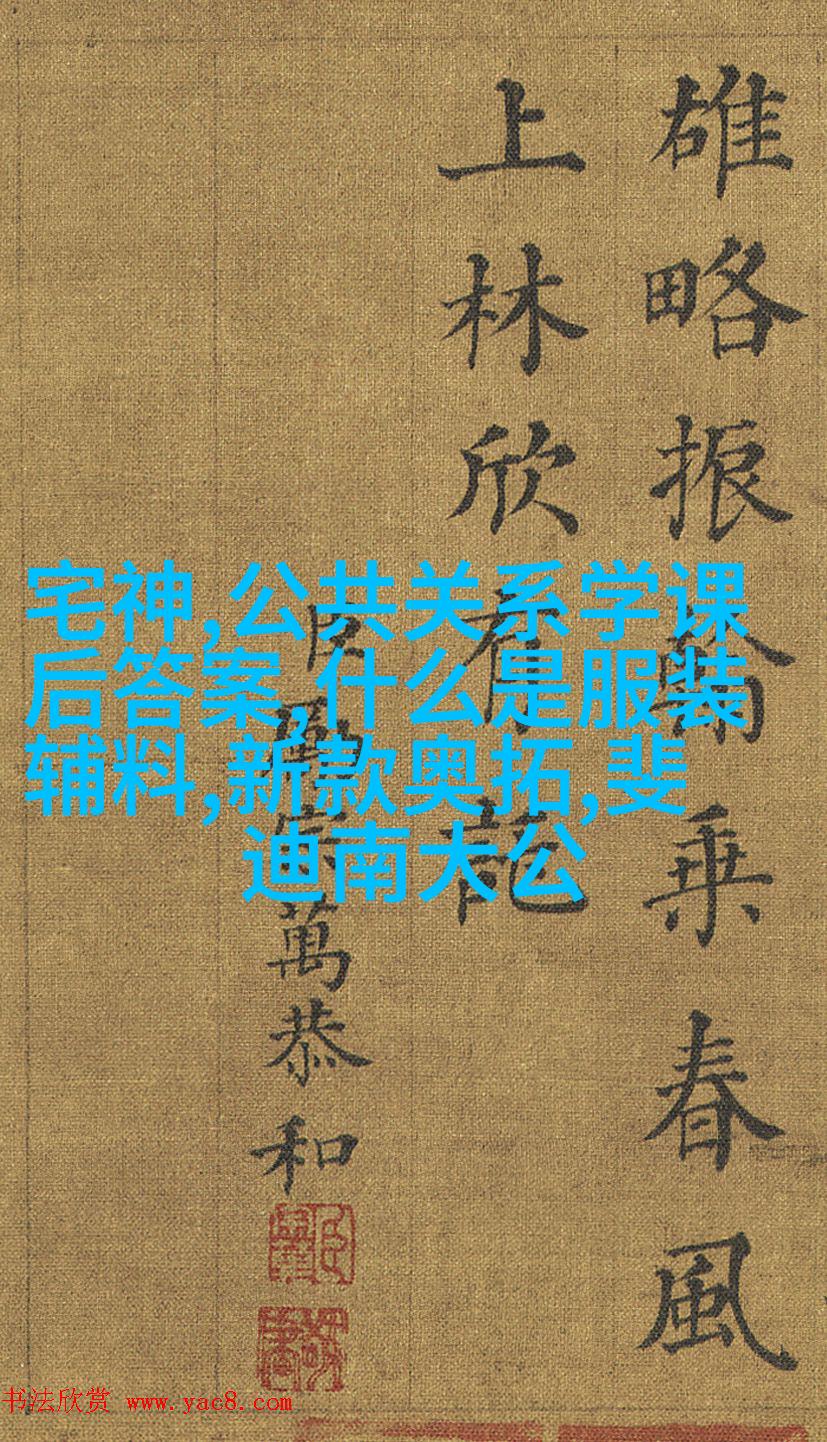 雄略振乘春風
上林欣龍
臣宗萬恭和
宅神,公共关系学课
后答案,什么是服装
辅料,新款奥拓,斐
迪南大公
书法欣赏 www.yac8.com